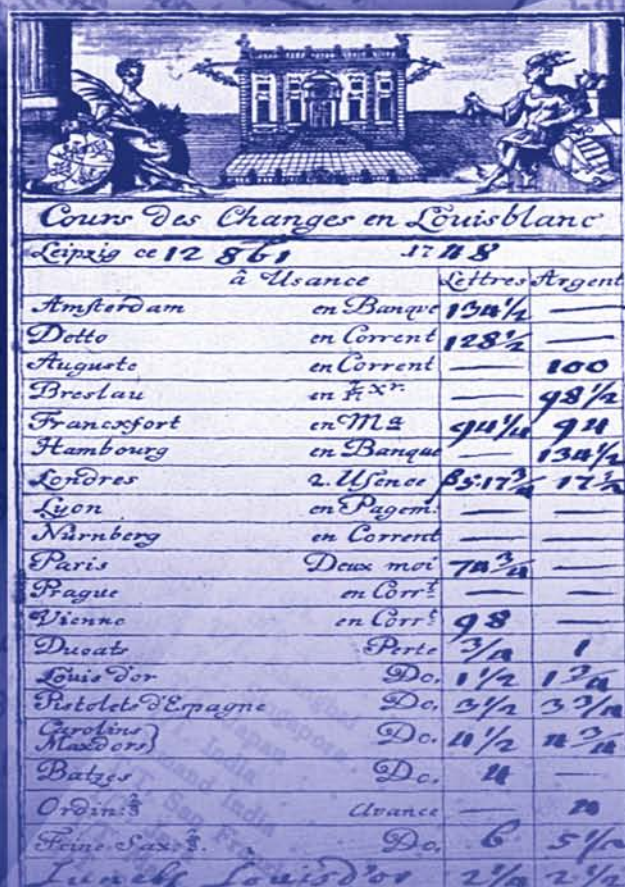 Cours des Changes en Louisblanc
Leipzig ce 12 1748
à Usance Lettres Argent
Amsterdam en Banque 134½ —
Detto en Corrent 128½ —
Auguste en Corrent — 100
Breslau en — 98½
Francxfort en M 94¼ 94
Hambourg en Banque — 134½
Londres 2. Usence 5.17¾ 17½
Lyon en Pagem. — —
Nürnberg en Corrent — —
Paris Deux moi 74¾ —
Prague en Corr.t — —
Vienne en Corr.t 98 —
Ducats Perte ¾ 1
Louis d'or Do. 1½ 1¾
Pistolets d'Espagne Do. 3½ 3¾
Carolins }
Maxdors } Do. 4½ 4¾
Batzes Do. 4 —
Ordin: ⅔ Avance —
Feine Sax: ⅔. Do. 6 5½
Louisd'or 2½ 2½
Shanghai
Singapore
Japan
India
India